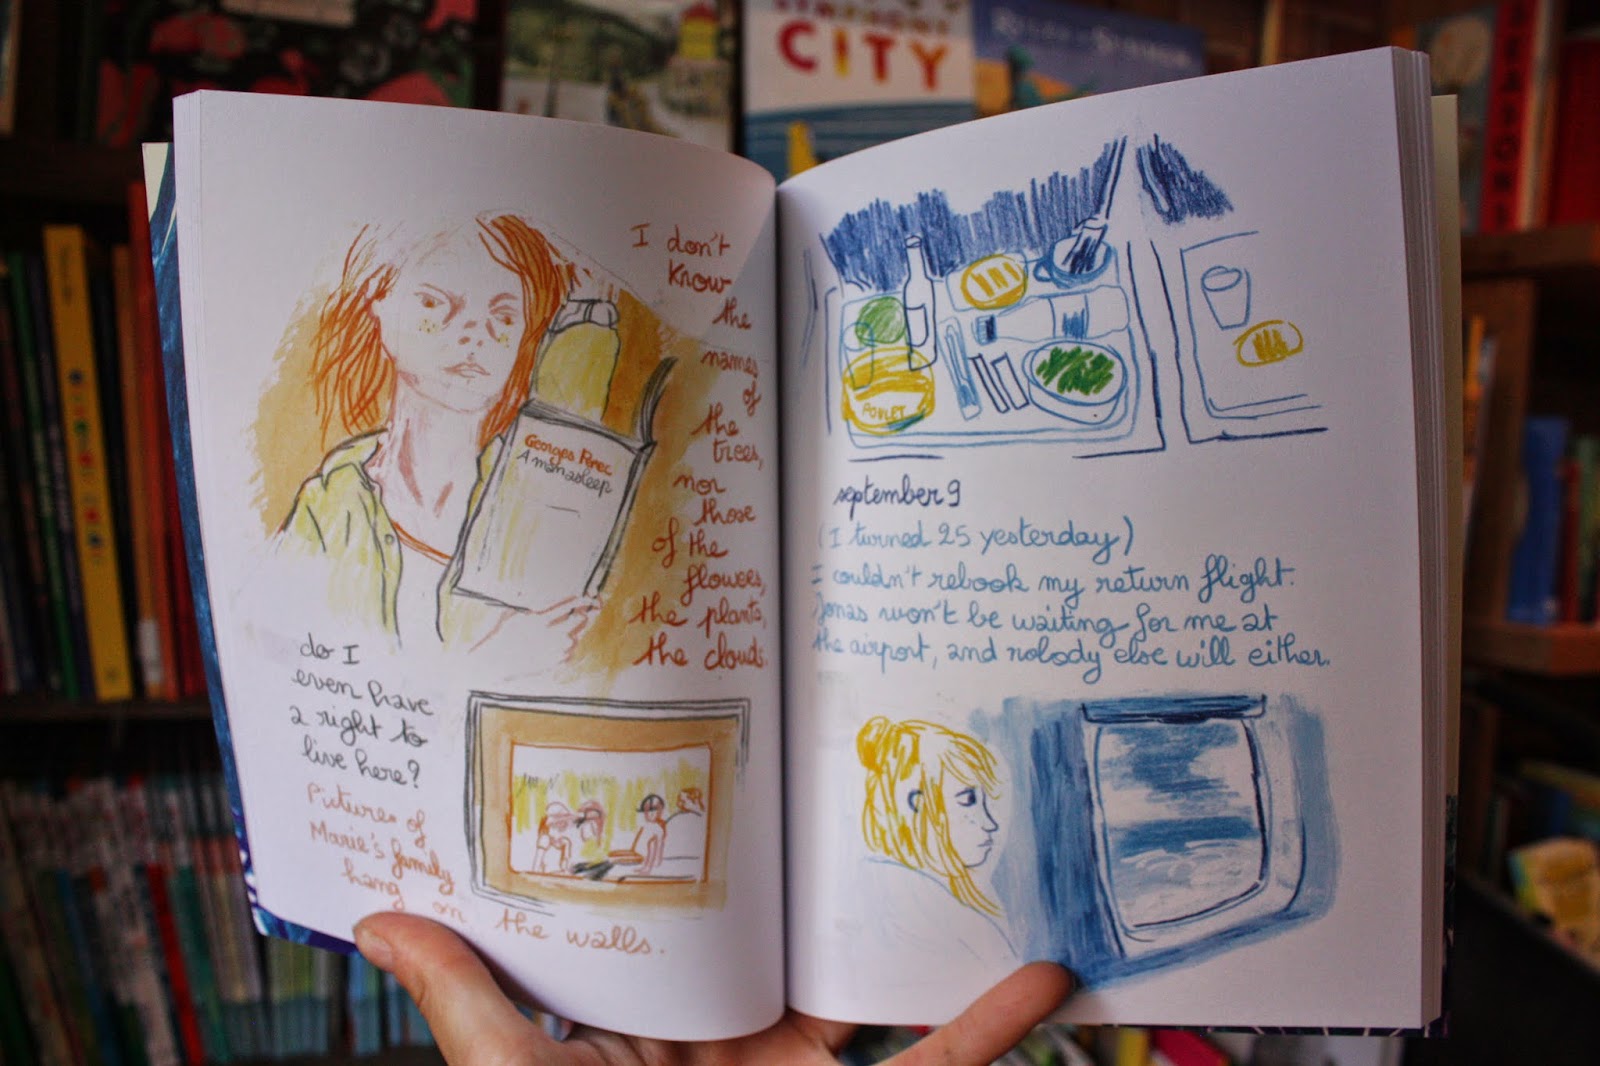 CITY
I don't
know
the
names
of
the
trees,
nor
those
of the
flowers,
the plants,
the clouds.
Georges Perec
A man asleep
do I
even have
a right to
live here?
Pictures of
Marie's family
hang on the walls.
POULET
september 9
(I turned 25 yesterday)
I couldn't rebook my return flight.
Jonas won't be waiting for me at
the airport, and nobody else will either.